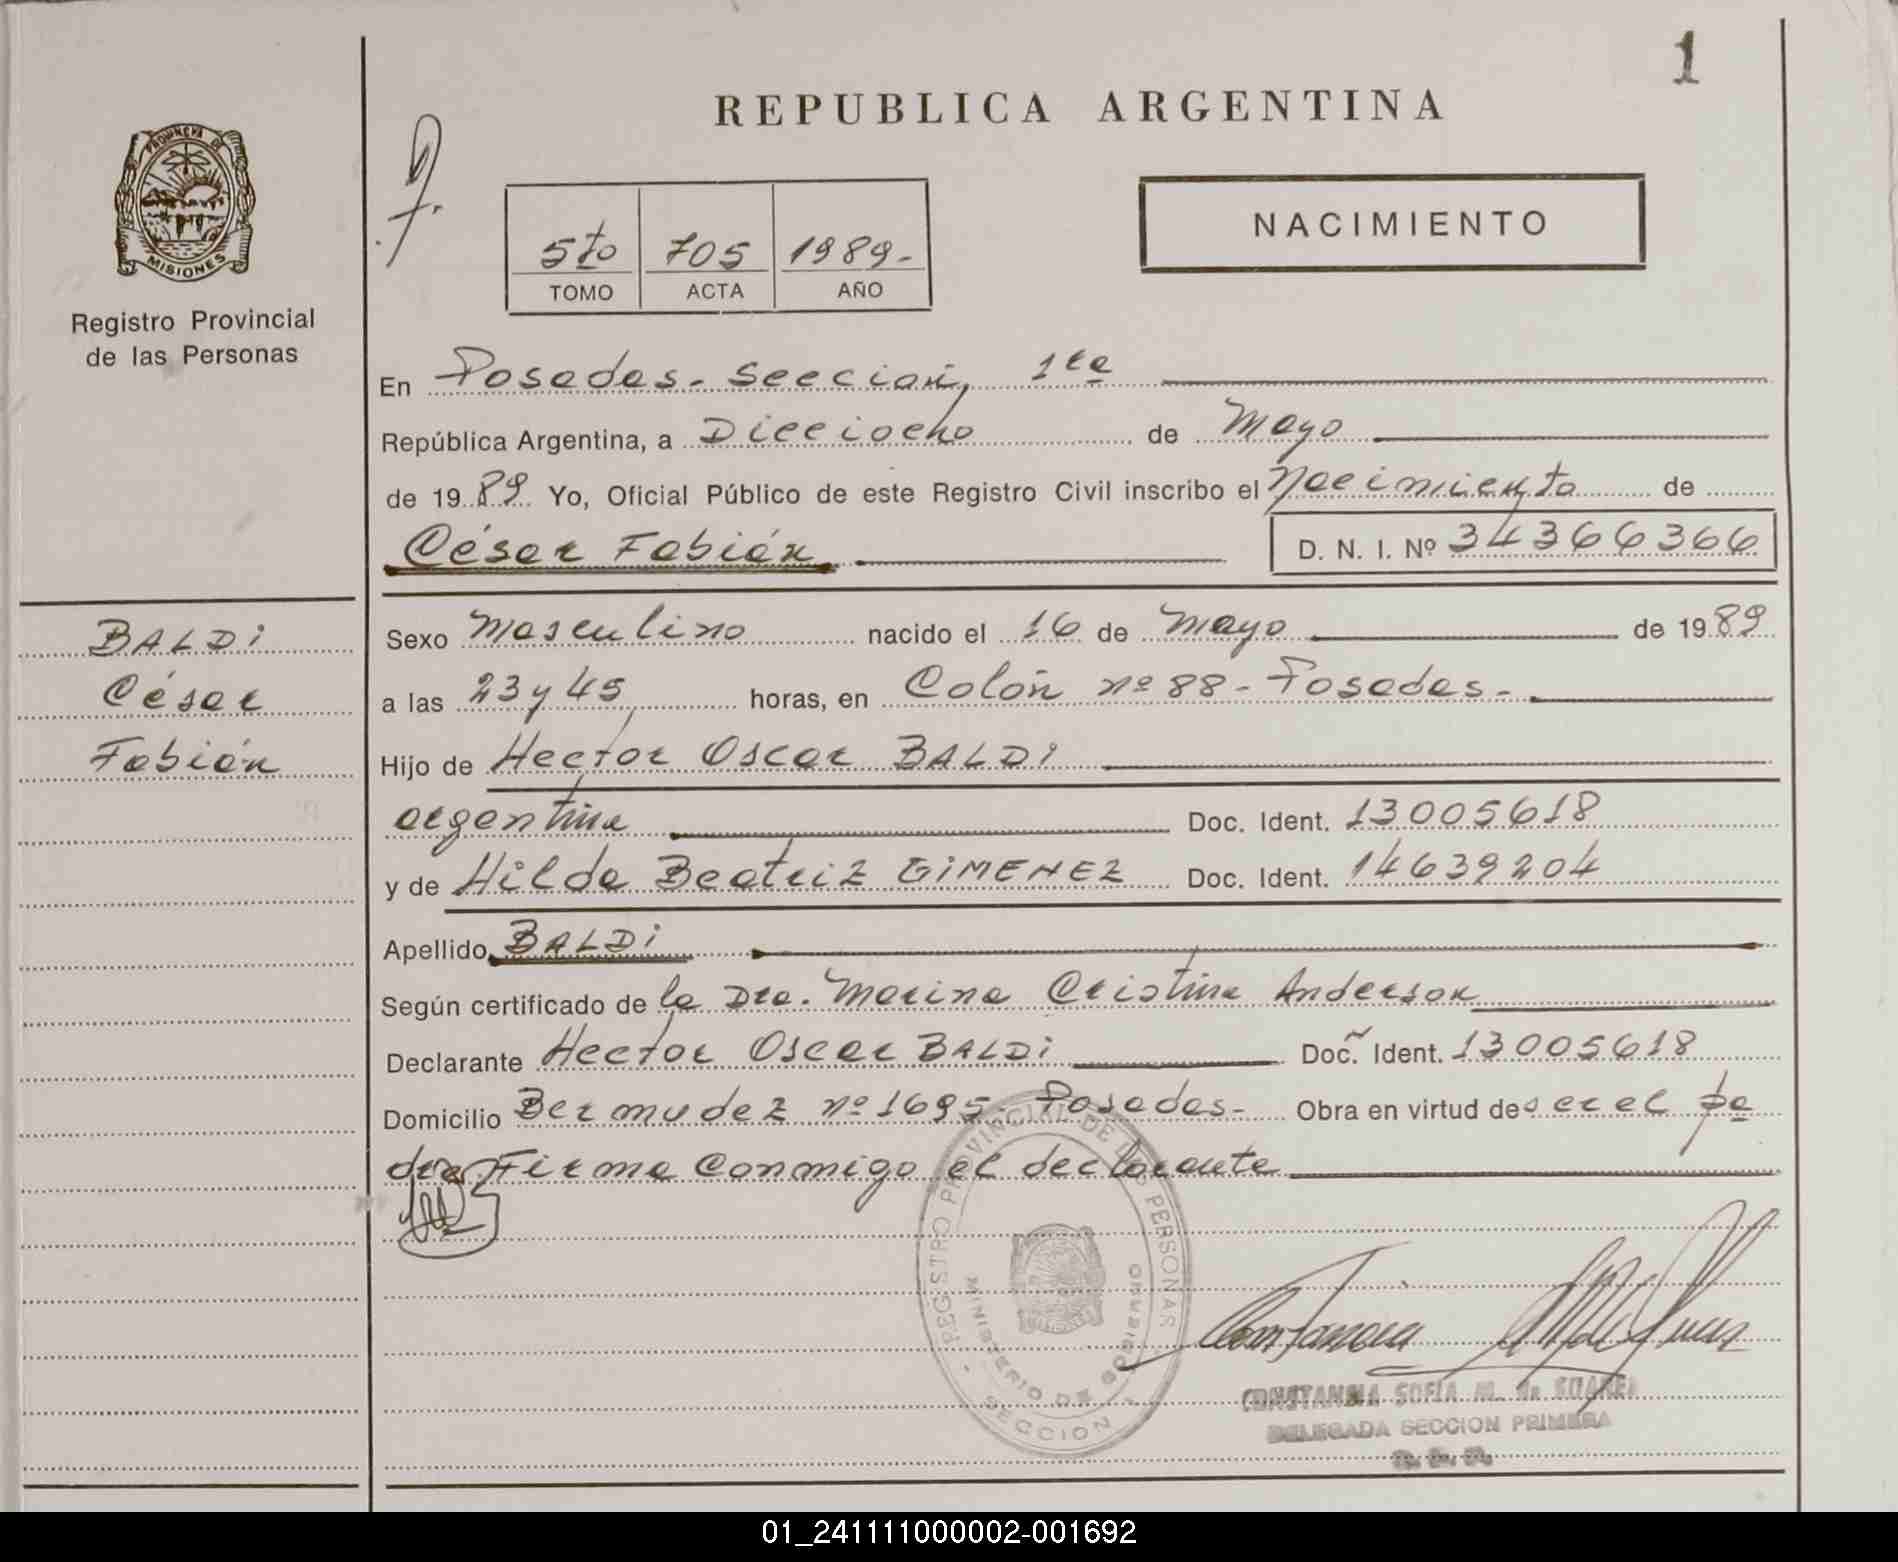 1
REPUBLICA ARGENTINA
PROVINCIA DE
MISIONES
Registro Provincial
de las Personas
5to 705 1989.-
TOMO ACTA AÑO
NACIMIENTO
En Posadas. Sección, 1ra
República Argentina, a Dieciocho de Mayo
de 1989. Yo, Oficial Público de este Registro Civil inscribo el Nacimiento de
César Fabián D. N. I. Nº 34366366
BALDI
César
Fabián
Sexo Masculino nacido el 16 de Mayo de 1989
a las 23 y 45 horas, en Colón nº 88 - Posadas -
Hijo de Hector Oscar BALDI
argentina Doc. Ident. 13005618
y de Hilda Beatriz GIMENEZ Doc. Ident. 14639204
Apellido BALDI
Según certificado de la Dra. Marina Cristina Anderson
Declarante Hector Oscar BALDI Doc. Ident. 13005618
Domicilio Bermudez nº 1695. Posadas- Obra en virtud de ser el pa
dre. Firma conmigo el declarante
REGISTRO PROVINCIAL DE LAS PERSONAS
MINISTERIO DE GOBIERNO
- SECCION 1 -
CONSTANCIA SOFIA M. de SUAREZ
DELEGADA SECCION PRIMERA
01_241111000002-001692